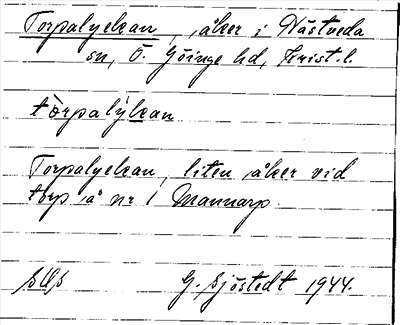 Torpalyckan, åker i Nästveda
sn, Ö. Göinge hd, Krist. l.
tòrpalýkan
Torpalyckan, liten åker vid
torp å nr 1 Mannarp.
G. Sjöstedt 1944.